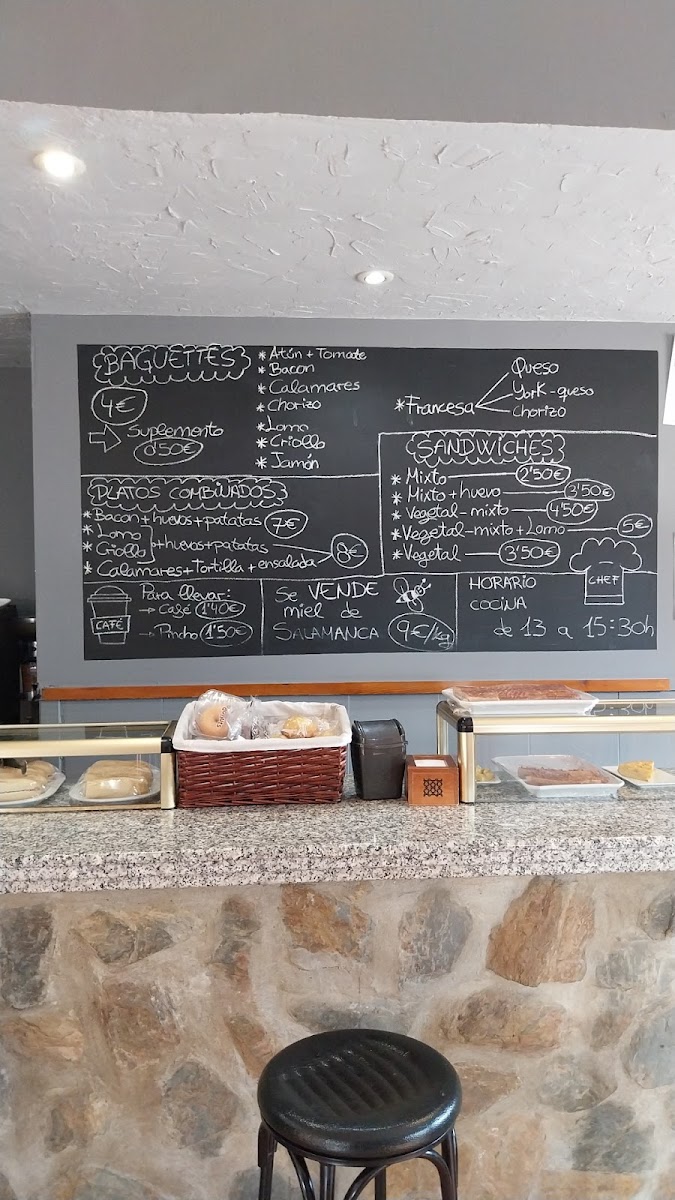 BAGUETTES
4€
Suplemento
0'50€
* Atún + Tomate
* Bacon
* Calamares
* Chorizo
* Lomo
* Criollo
* Jamón
* Francesa
Queso
York-queso
Chorizo
PLATOS COMBINADOS
* Bacon + huevos + patatas 7€
* Lomo
* Criollo
+ huevos + patatas
* Calamares + Tortilla + ensalada
8€
SANDWICHES
* Mixto 2'50€
* Mixto + huevo 3'50€
* Vegetal-mixto 4'50€
* Vegetal-mixto + Lomo 5€
* Vegetal 3'50€
CAFÉ
Para llevar:
Café 1'40€
Pincho 1'50€
Se VENDE
miel de
SALAMANCA 9€/kg
HORARIO
COCINA
de 13 a 15:30h
CHEF